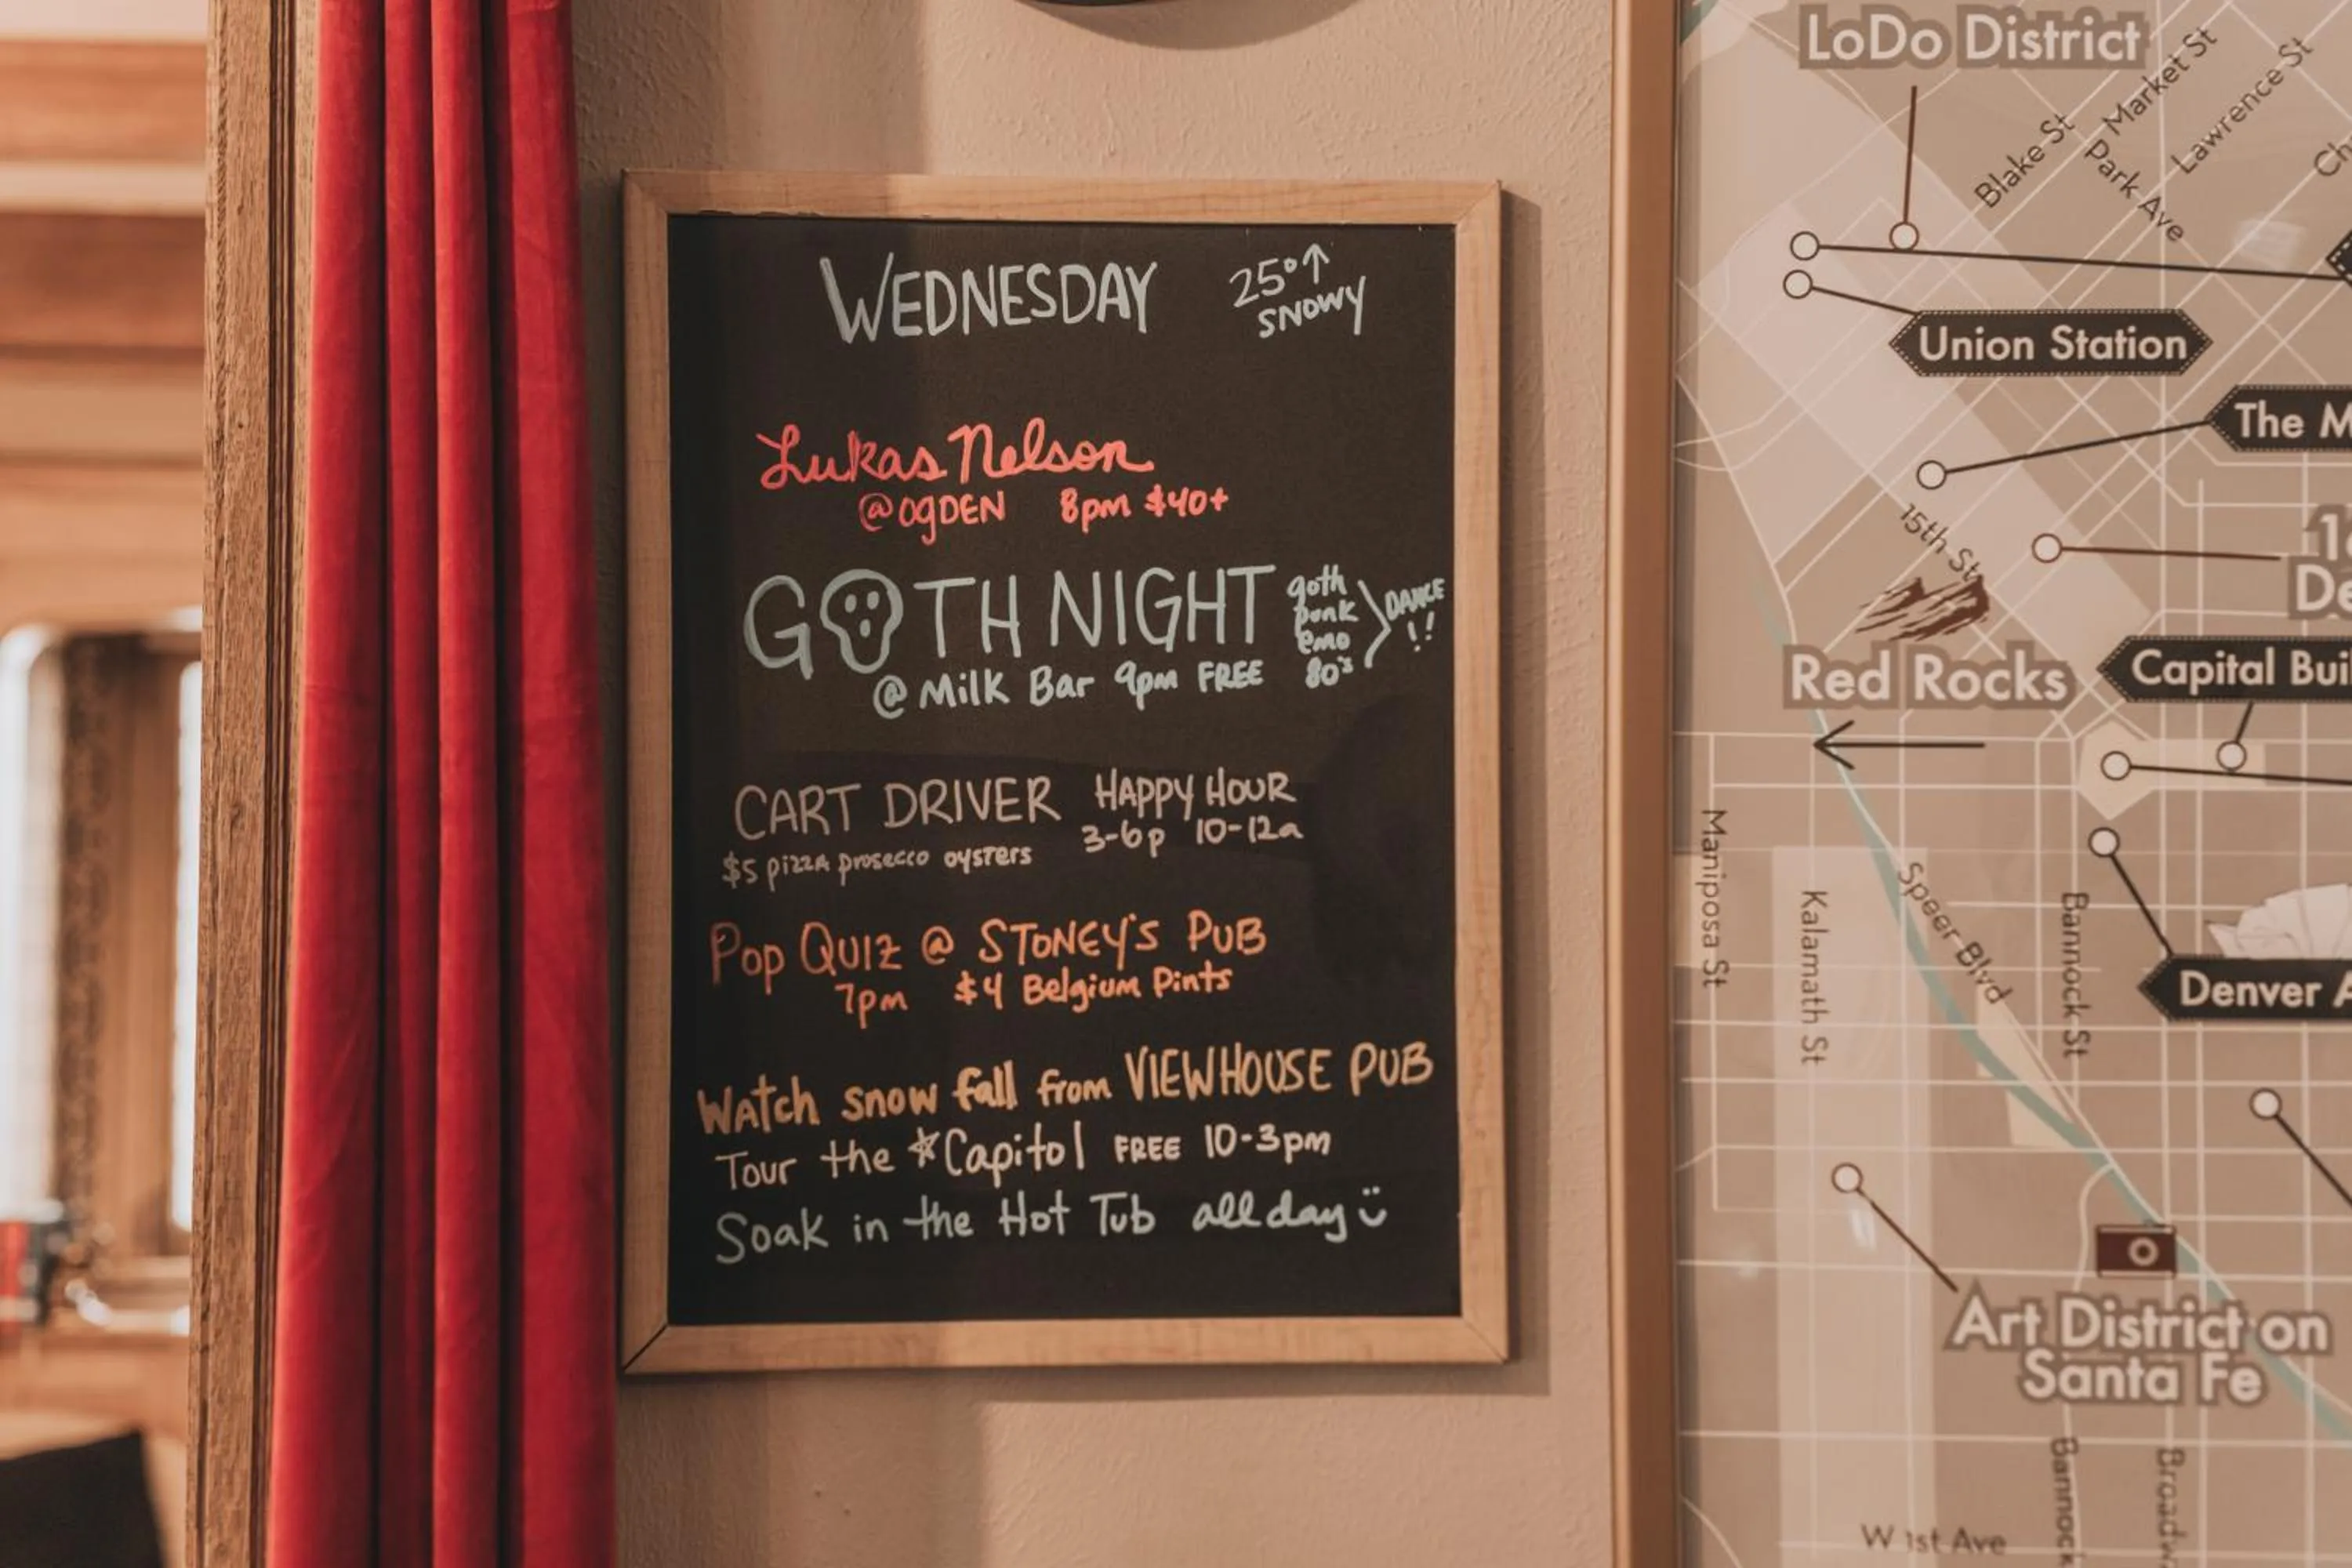 WEDNESDAY 25°↑
SNOWY
Lukas Nelson
@OGDEN 8pm $40+
GOTH NIGHT
goth
punk
emo
80's
DANCE
!!
@ Milk Bar 9pm FREE
CART DRIVER HAPPY HOUR
3-6p 10-12a
$5 pizza prosecco oysters
Pop Quiz @ STONEY'S PUB
7pm $4 Belgium Pints
Watch snow fall from VIEWHOUSE PUB
Tour the *Capitol FREE 10-3pm
Soak in the Hot Tub all day
LoDo District
Market St
Lawrence St
Blake St
Park Ave
Union Station
The M
15th St
Red Rocks
Capital Buil
Maniposa St
Kalamath St
Speer Blvd
Bannock St
Denver A
Art District on
Santa Fe
Bannock
Broadw
W 1st Ave